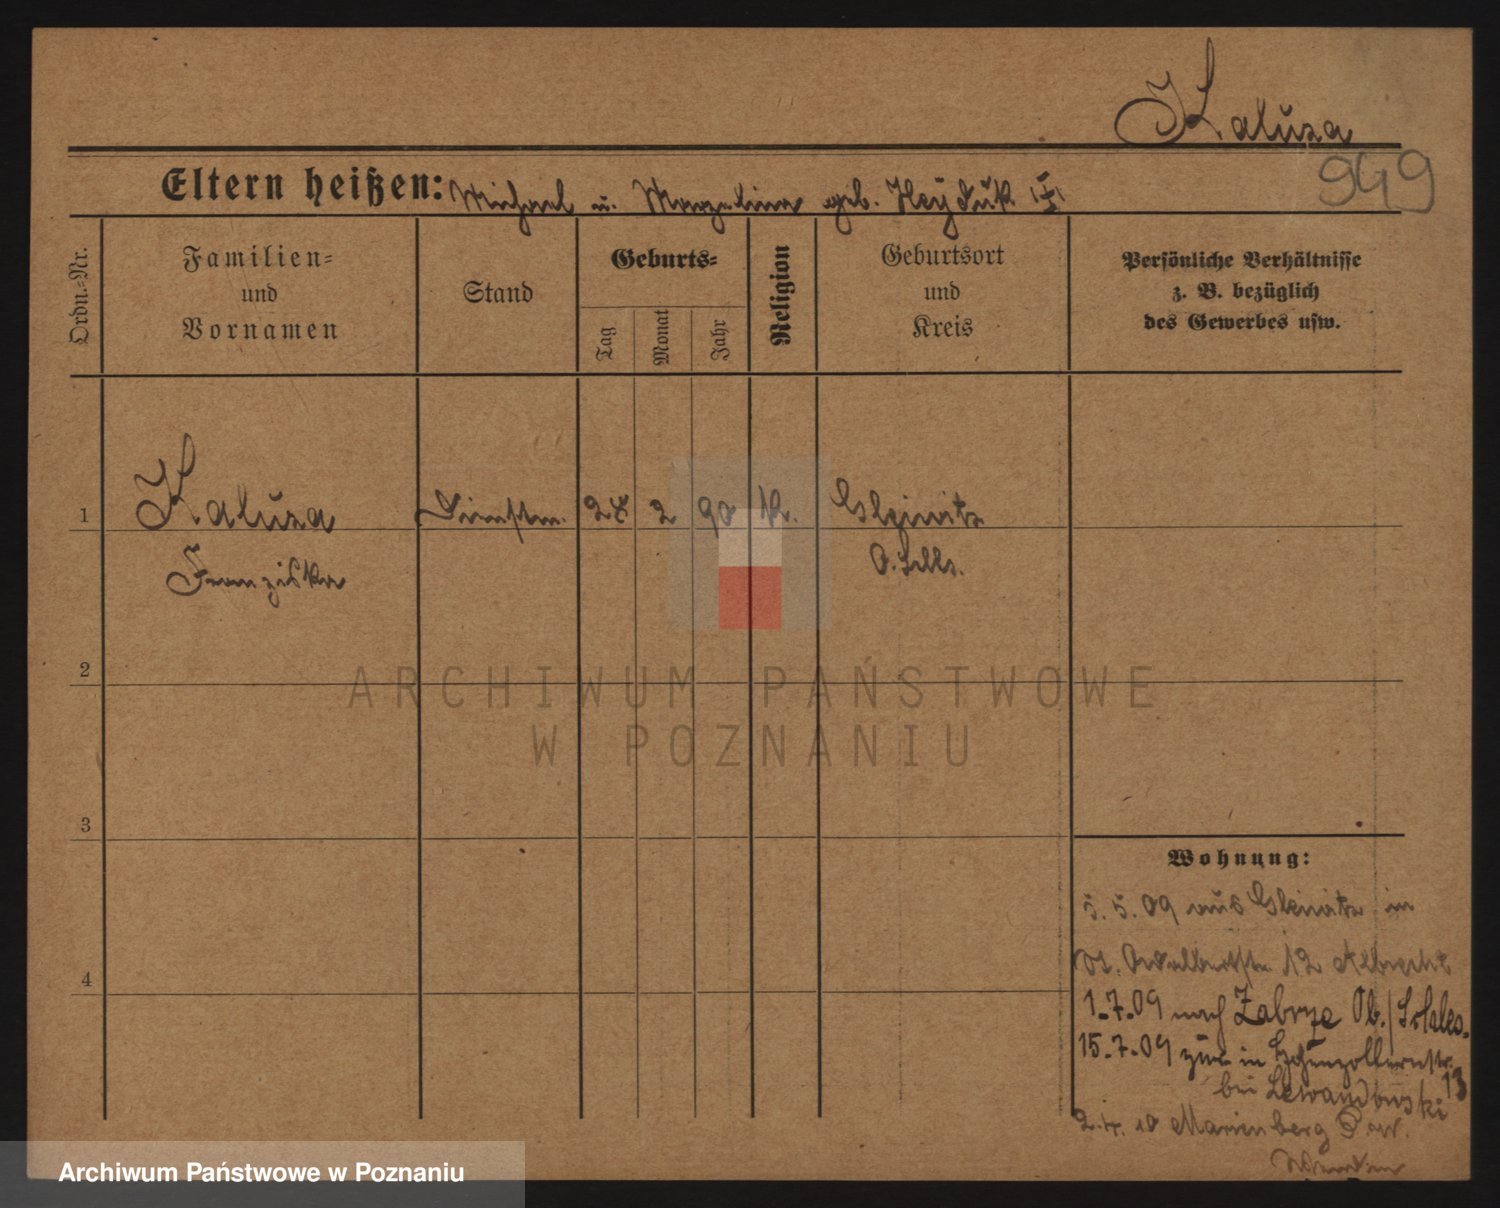 Kaluza
949
Eltern heißen: Michael u. Marzelina geb. Heyduk
Ordn.-Nr.
Familien-
und
Vornamen
Stand
Geburts-
Tag
Monat
Jahr
Religion
Geburtsort
und
Kreis
Persönliche Verhältnisse
z. B. bezüglich
des Gewerbes usw.
1
Kaluza
Franziska
Dienstm.
2 90 k.
Gleiwitz
O.Schls.
2
ARCHIWUM PAŃSTWOWE
W POZNANIU
3
4
Wohnung:
5. 5. 09 aus Gleiwitz in
St. Adalbertstr. 12 Albrecht
1.-7.-09 nach Zabrze Ob./Schles.
15.-7.-09 zur. in Hohenzollernstr. 13
bei Lewandowski
2.4. 10 Marienberg
Archiwum Państwowe w Poznaniu